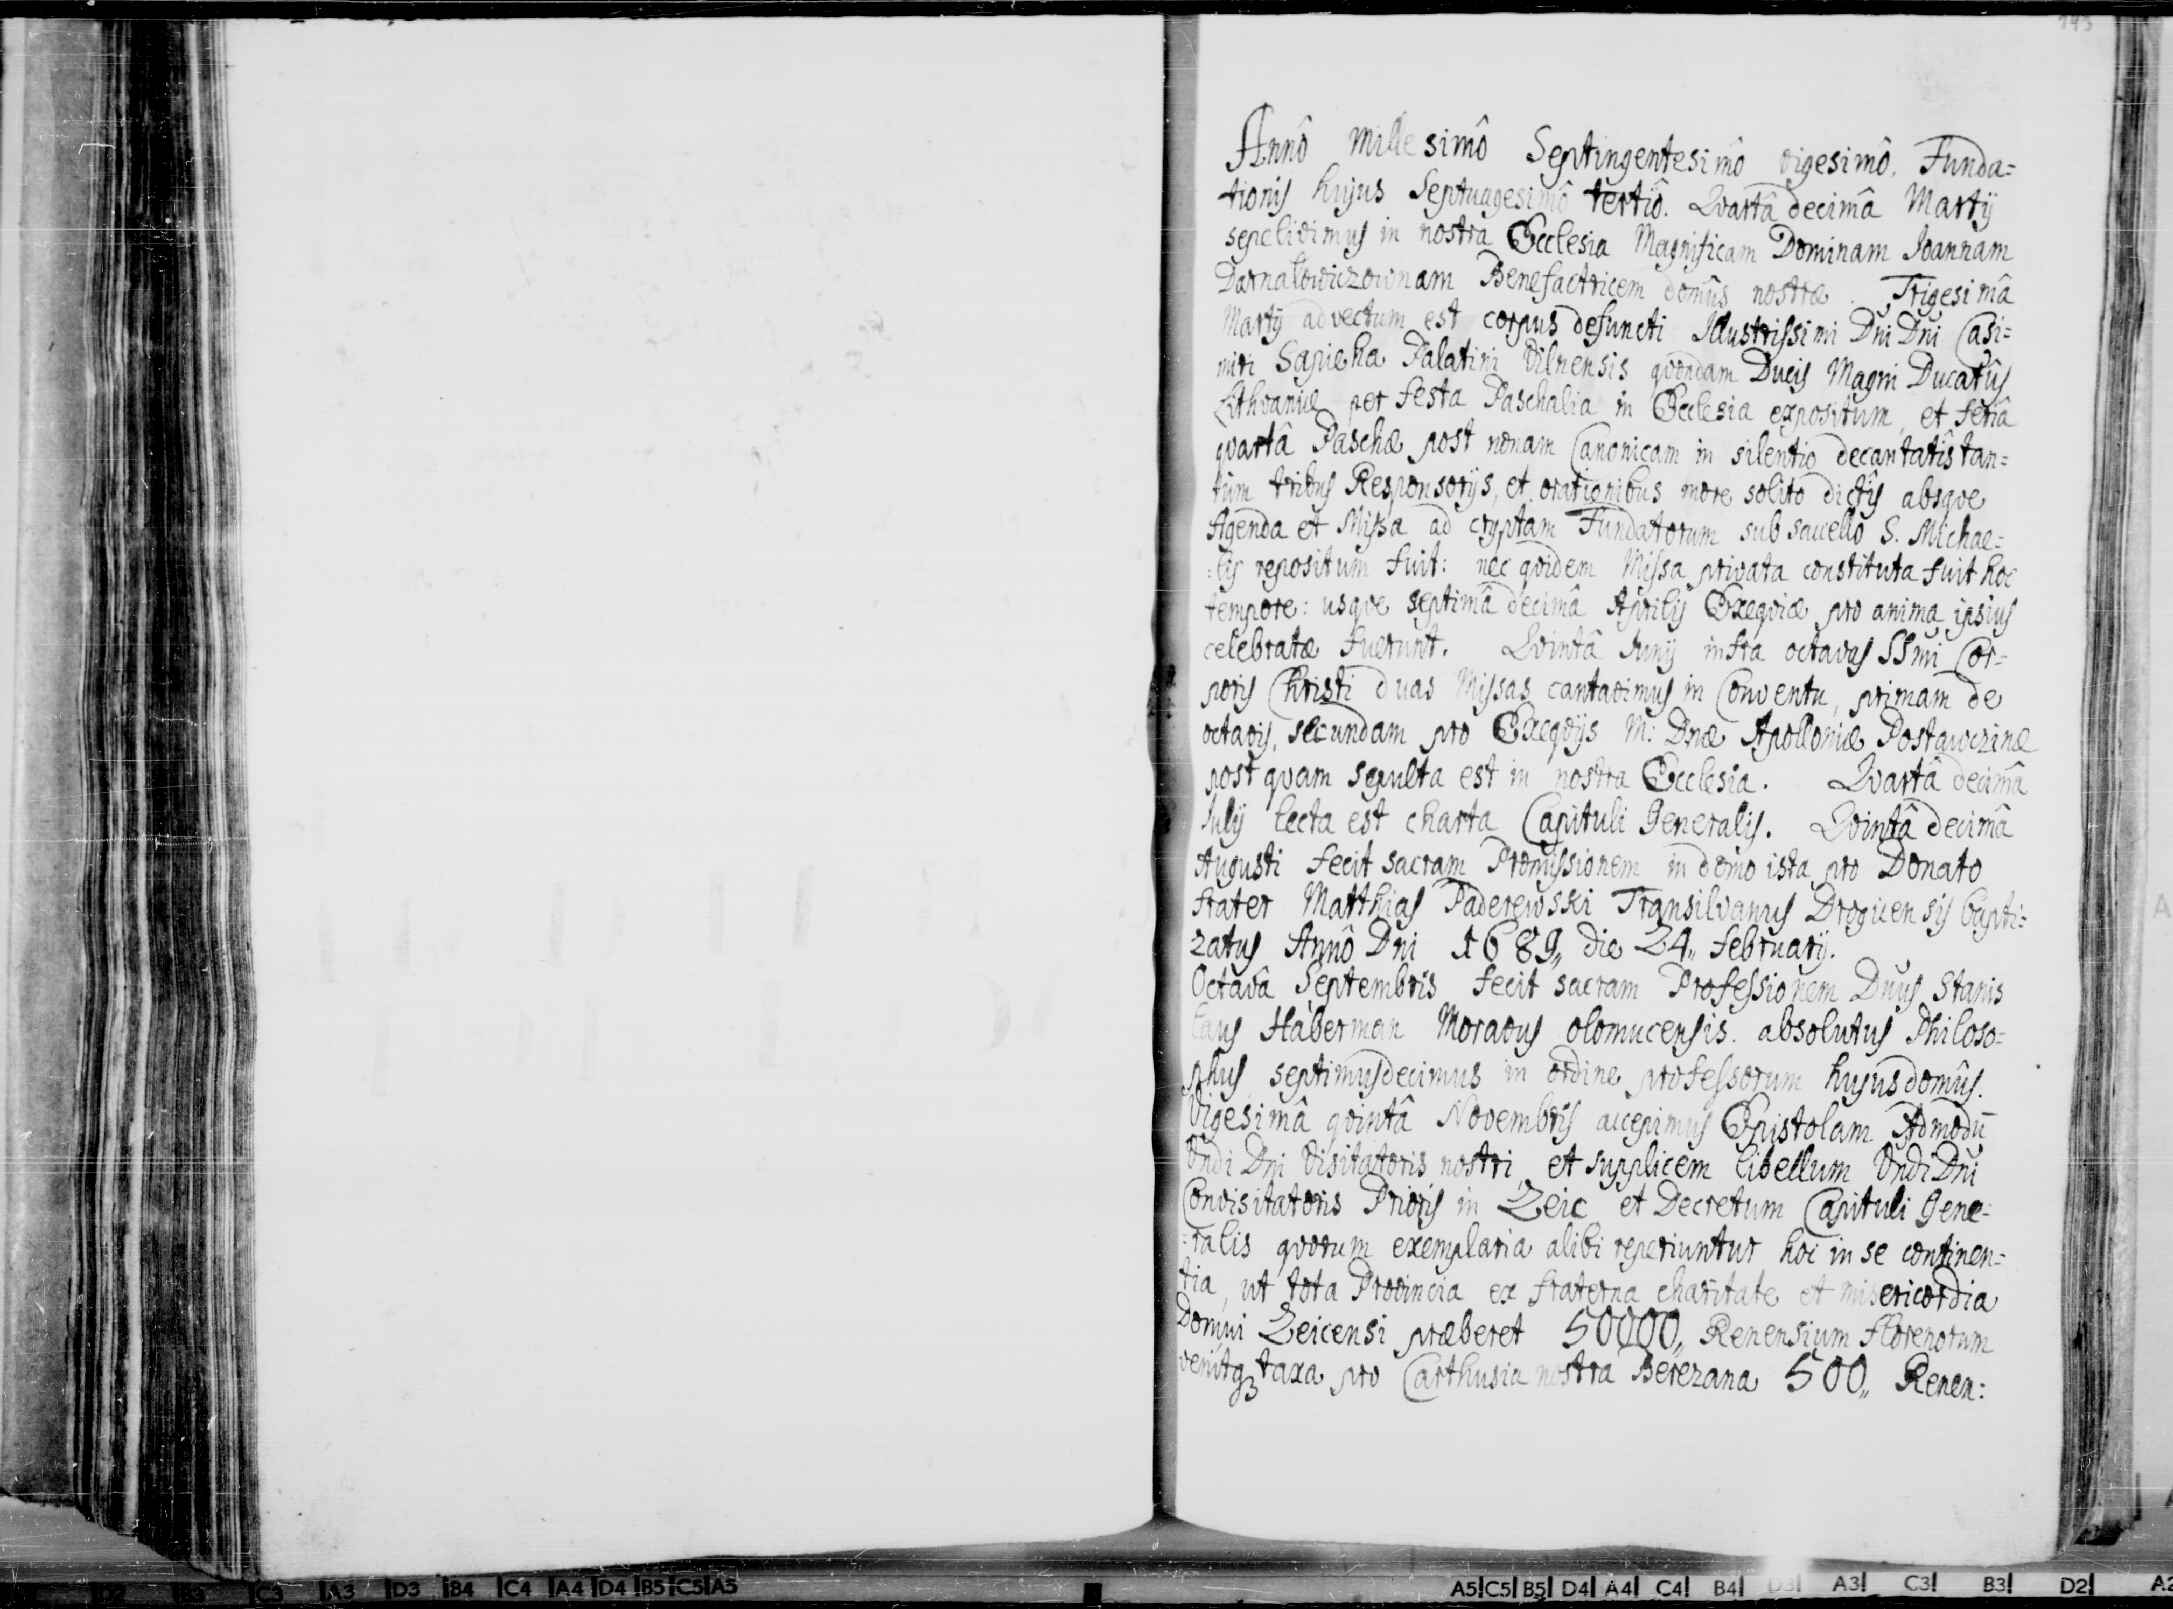 193
Annô Millesimô Septingentesimô vigesimô. Funda=
tionis hujus Septuagesimô tertiô. Qvartâ decimâ Martij
sepelivimus in nostra Ecclesia Magnificam Dominam Joannam
Darnałowiczownam Benefactricem domûs nostræ. Trigesimâ
Martij advectum est corpus defuncti Illustrissimi Dni Dni Casi=
miri Sapieha Palatini Vilnensis qvondam Ducis Magni Ducatûs
Lithvaniæ per festa Paschalia in Ecclesia expositum, et feriâ
qvartâ Paschæ post nonam Canonicam in silentio decantatis tan=
tum tribus Responsorijs, et orationibus more solito dictis absqve
Agenda et Missa ad cryptam Fundatorum sub sacello S. Michae=
=lis repositum fuit: nec qvidem Missa privata constituta fuit hoc
tempore: usqve septimâ decimâ Aprilis Exeqviæ pro anima ipsius
celebratæ fuerunt. Qvintâ Junij infra octavas SSmi Cor=
poris Christi duas Missas cantavimus in Conventu, primam de
octavis, secundam pro Exeqvijs M: Dnæ Apolloniæ Postawczinæ
post qvam sepulta est in nostra Ecclesia. Qvartâ decimâ
Julij lecta est charta Capituli Generalis. Qvintâ decimâ
Augusti fecit sacram Promissionem in domo ista pro Donato
frater Matthias Paderewski Transilvanus Droguensis bapti=
zatus Annô Dni 1689,, die 24,, februarij.
Octavâ Septembris fecit sacram Professionem Dnus Stanis
laus Haberman Moravus olomucensis. absolutus Philoso=
phus septimusdecimus in ordine professorum hujus domûs.
Vigesimâ qvintâ Novembris accepimus Epistolam Admodū
Vndi Dni Visitatoris nostri, et supplicem libellum Vndi Dni
Convisitatoris Prioris in Zeic et Decretum Capituli Gene=
=ralis qvorum exemplaria alibi reperiuntur hoc in se continen=
tia, ut tota Provincia ex fraterna charitate et misericordia
Domui Zeicensi præberet 50000,, Renensium florenorum
venitq3 taxa pro Carthusia nostra Berezana 500,, Renen:
D2 B3 C3 A3 D3 B4 C4 A4 D4 B5 C5 A5
A5 C5 B5 D4 A4 C4 B4 D3 A3 C3 B3 D2 A2